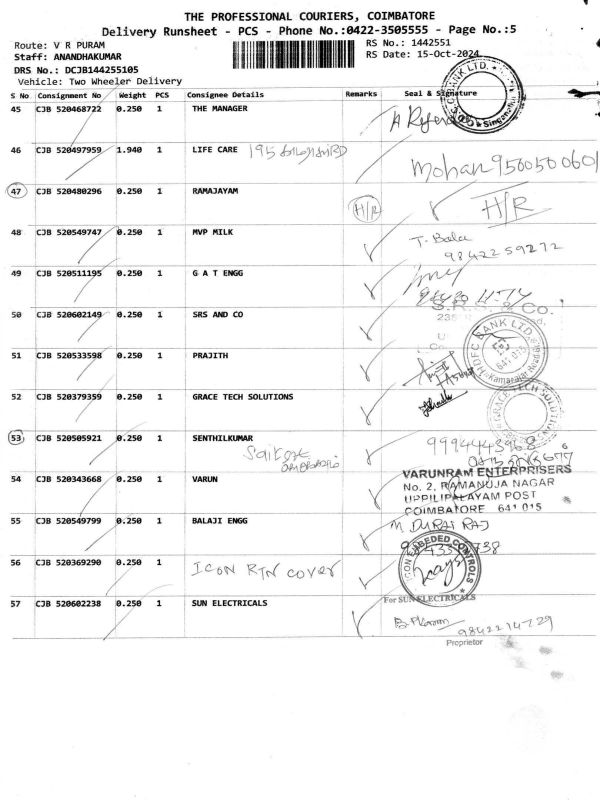 THE PROFESSIONAL COURIERS, COIMBATORE
Delivery Runsheet - PCS - Phone No.:0422-3505555 - Page No.:5
Route: V R PURAM
RS No.: 1442551
Staff: ANANDHAKUMAR
RS Date: 15-Oct-2024
DRS No.: DCJB144255105
Vehicle: Two Wheeler Delivery
S No Consignment No Weight PCS Consignee Details Remarks Seal & Signature
45 CJB 520468722 0.250 1 THE MANAGER
46 CJB 520497959 1.940 1 LIFE CARE
Mohan 9500500601
47 CJB 520480296 0.250 1 RAMAJAYAM H/R H/R
48 CJB 520549747 0.250 1 MVP MILK T. Bala
9842259272
49 CJB 520511195 0.250 1 G A T ENGG
50 CJB 520602149 0.250 1 SRS AND CO
HDFC BANK LTD.
641 015
Kamarajar Road
51 CJB 520533598 0.250 1 PRAJITH
52 CJB 520379359 0.250 1 GRACE TECH SOLUTIONS
GRACE TECH SOLUTIONS
53 CJB 520505921 0.250 1 SENTHILKUMAR
54 CJB 520343668 0.250 1 VARUN
VARUNRAM ENTERPRISERS
No. 2, RAMANUJA NAGAR
UPPILIPALAYAM POST
COIMBATORE 641 015
55 CJB 520549799 0.250 1 BALAJI ENGG M DURAI RAJ
56 CJB 520369290 0.250 1 ICON RTN COVER
57 CJB 520602238 0.250 1 SUN ELECTRICALS
For SUN ELECTRICALS
9842214729
Proprietor